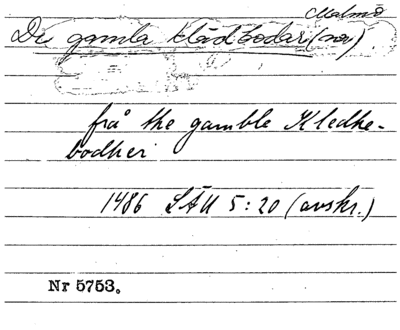 Malmö
De gamla klädbodar(na)
frå the gamble Kledhe-
bodher
1486 LÄU 5:20 (avskr.)
Nr 5753.